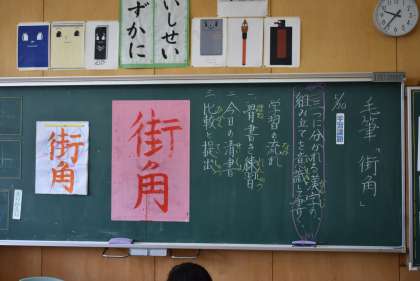 いしせい
ずかに
毛筆「街角」
三つに分かれる漢字の、
組み立てを意識して書く。
学習の流れ
書き 練習
今日の清書
比較と提出
街角
街角